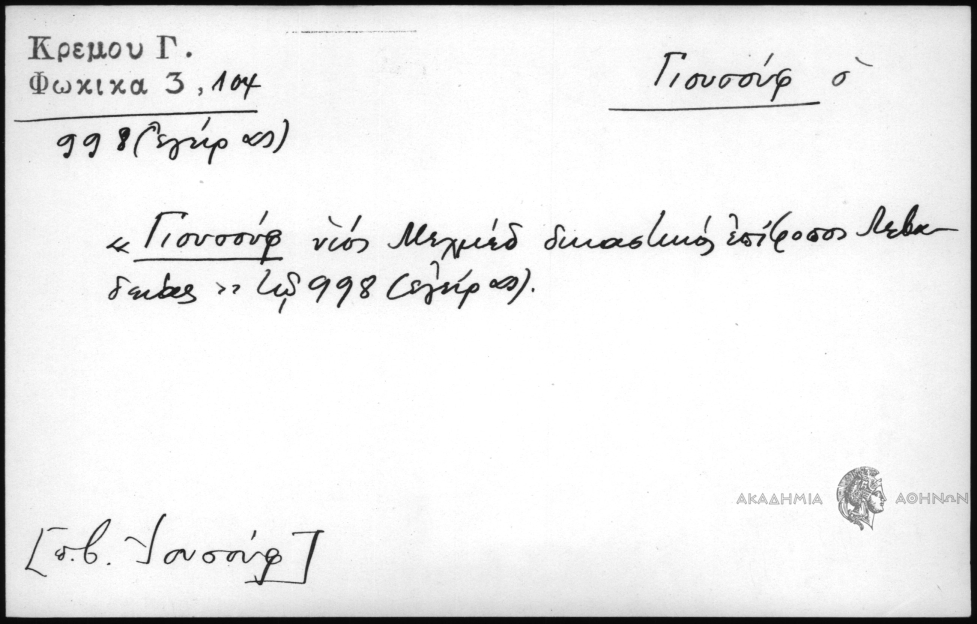 Κρεμου Γ.
Φωκικα 3, 104
998 (ἐγίρας)
Γιουσούφ ὁ
« Γιουσούφ υἱός Μεχμέδ δικαστικός ἐπίτροπος Λεβα-
δείας » τῷ 998 (ἐγίρας).
ΑΚΑΔΗΜΙΑ ΑΘΗΝΩΝ
[π.β. Ἰουσούφ]